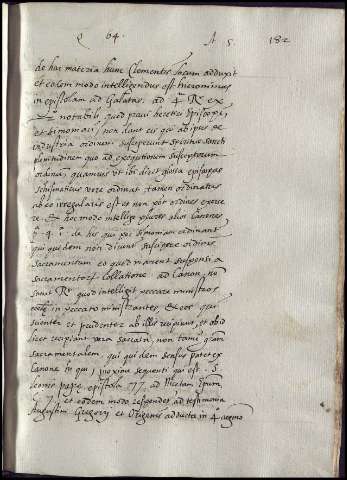 64. 182
de hac materia hunc Clementis locum adduxit
et eodem modo intelligendus est Hieronimus
in epistolam ad Galatas. ad 4m Rr ex
notabili, quod pravi heretici Episcopi,
et simoniaci, non dant eis qui ab ipsis de
industria ordinem susceperunt spiritus sancti
plenitudinem quo ad exequutionem susceptorum
ordinum, quamvis ut ibi dicit glosa episcopus
schismaticus vere ordinat tamen ordinatus
ab eo irregularis est et non potest ordines exerce
re. Et hoc modo intelligo plures alios Canones
de his qui per simoniam ordinant
qui quidem non dicunt suscipere ordinis
sacramentum eo quod manent suspensi a
sacramentorum collatione ad Canon. non
sanat Rr quod intelligit peccare ministros
in peccato ministrantes, et eos qui
scienter et prudenter ab illis recipiunt, et ob id
licet recipiant vera sacramenta, non tamen gratiam
sacramentalem, qui quidem sensus patet ex
Canone qui proxime sequenti qui est. S.
leonis pape epistola 77, ad Nicetam
C. 7. et eodem modo respondet ad testimonia
Augustini Gregorii et Origenis adducta in 4o argumento